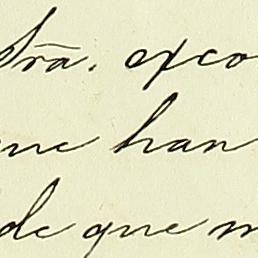 Sra. exco
que han
de que m